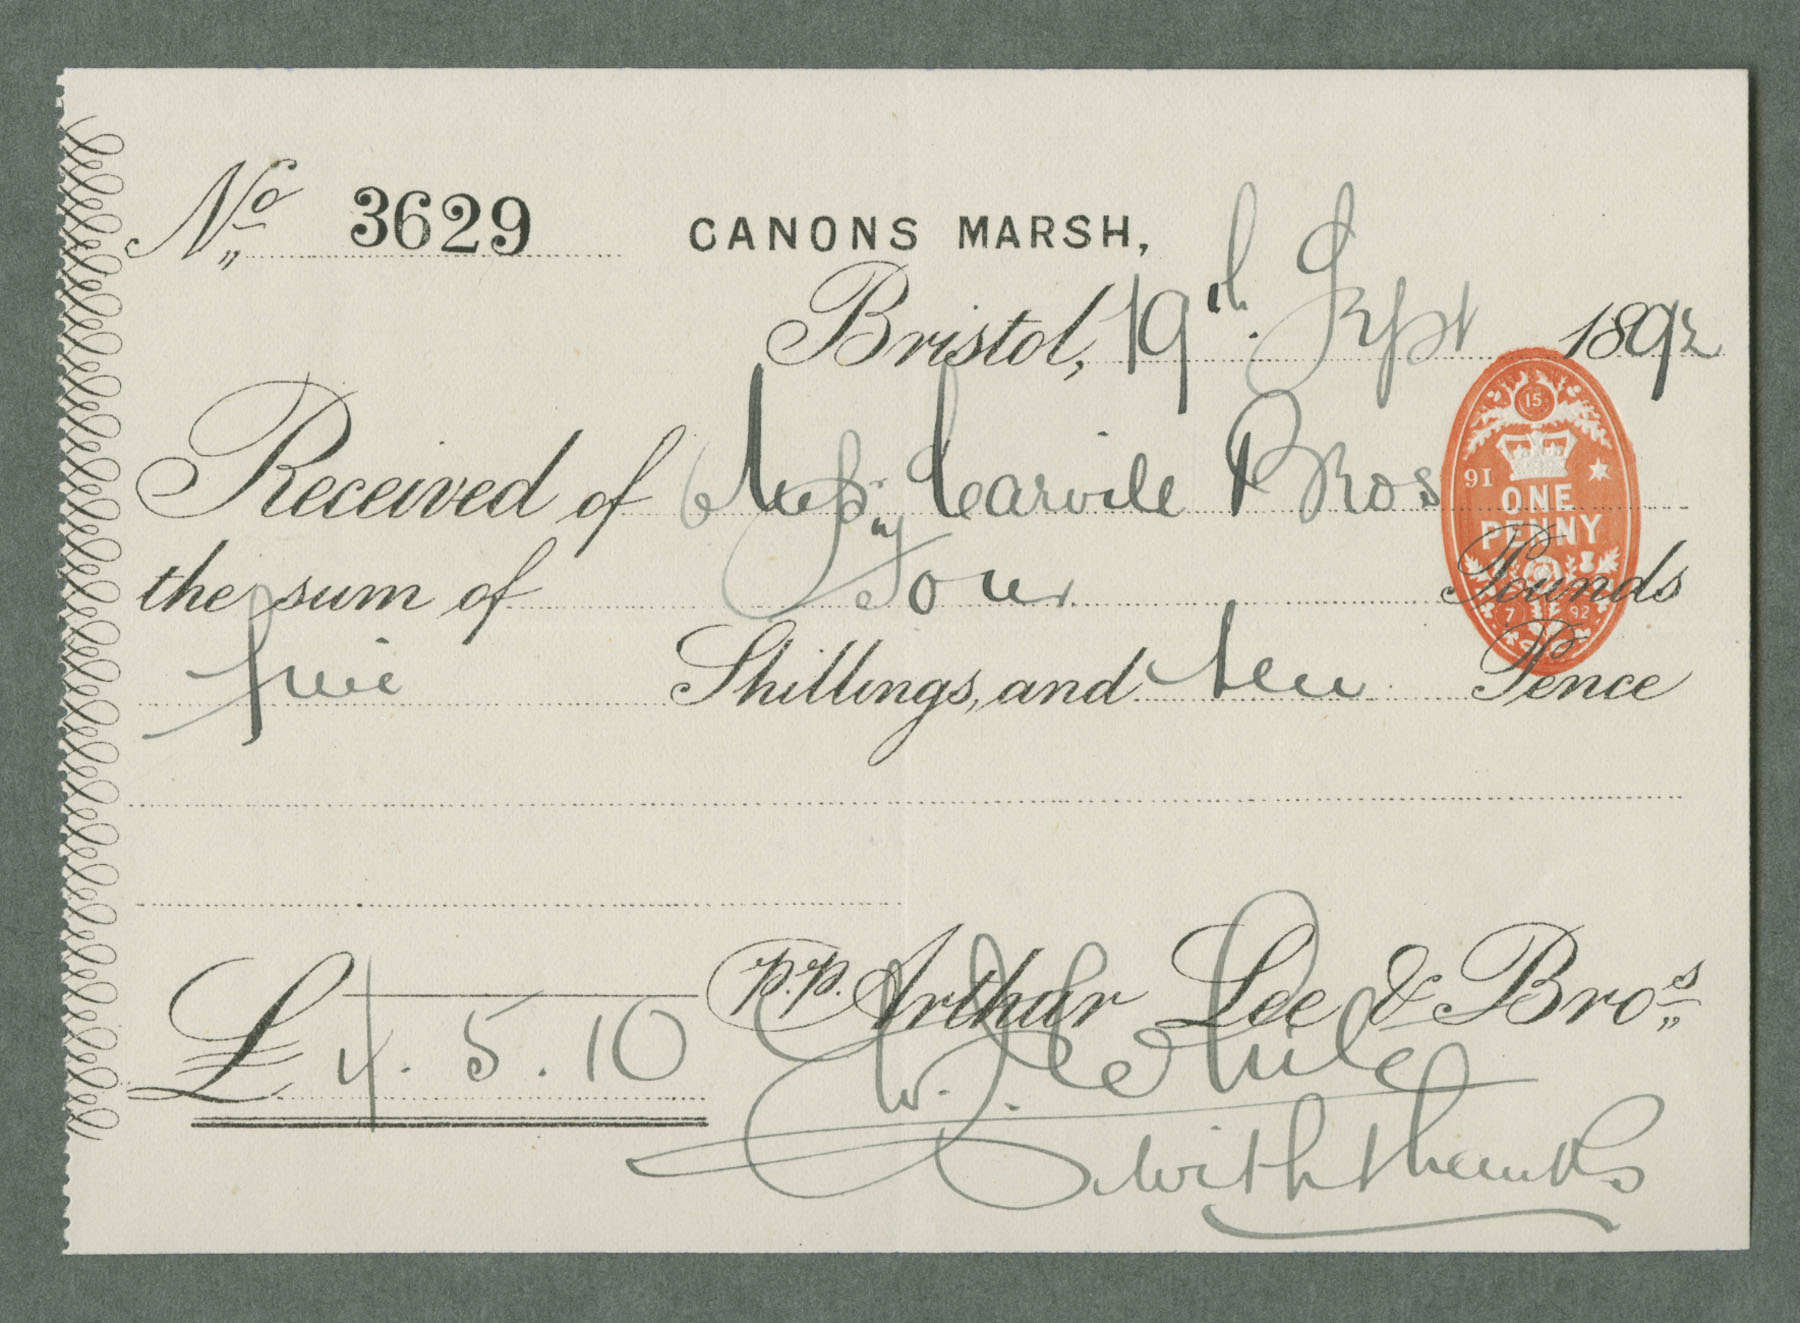 No 3629
CANONS MARSH,
Bristol, 19th. Sept 1892
Received of Messrs Carvile Bros
the sum of Four Pounds
five Shillings, and ten Pence
15
91
ONE
PENNY
7 92
£ 4. 5. 10
p.p. Arthur Lee & Bros
W. J.
with thanks